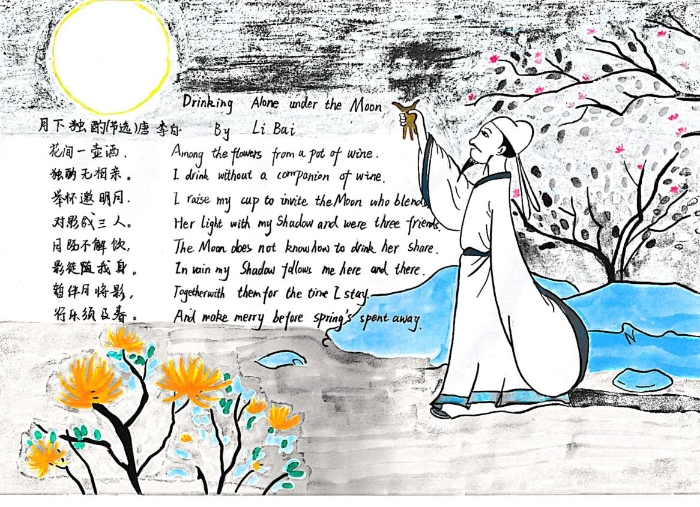 Drinking Alone under the Moon
月下独酌(节选)唐 李白 By Li Bai
花间一壶酒. Among the flowers from a pot of wine.
独酌无相亲。 I drink without a companion of wine.
举杯邀明月. I raise my cup to invite the Moon who blends
对影成三人。 Her light with my Shadow and were three friends.
月既不解饮, The Moon does not know how to drink her share.
影徒随我身。 In vain my Shadow follows me here and there.
暂伴月将影, Together with them for the time I stay
行乐须及春。 And make merry before spring's spent away.